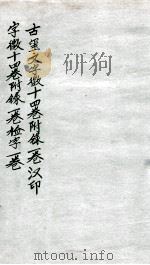 古玺文字徵十四卷附錄一卷汉印
字徵十四卷附錄一卷檢字一卷
mtoou.info
mtoou.info